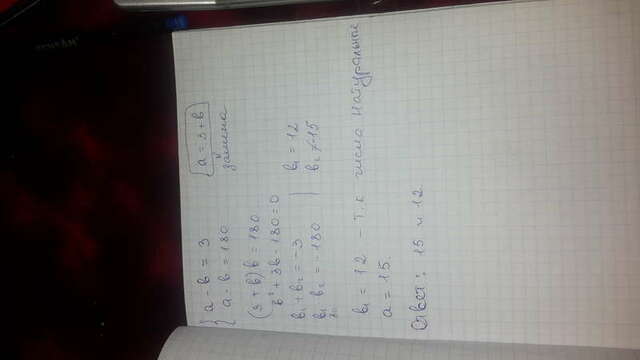 a - b = 3
a · b = 180
a = 3 + b
замена
(3 + b) b = 180
b² + 3b - 180 = 0
b₁ + b₂ = -3
b₁ b₂ = -180
b₁ = 12
b₂ ≠ -15
b₁ = 12 - т.к числа натуральные
a = 15.
Ответ: 15 и 12